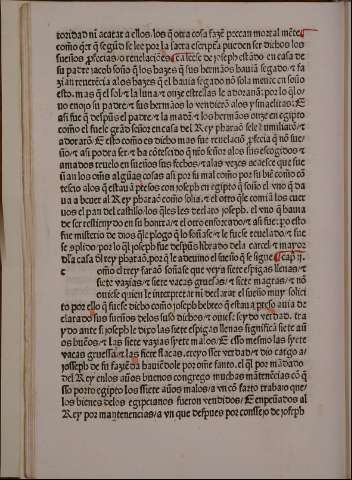 toridad ni acatar a ellos/los q̃ otra cosa fazẽ precan mortal mẽte
como q̃er q̃ segũd se lee por la sacra escriptura pueden ser dichos los
sueños profecias/o reuelaciões ca leese de joseph estãdo en casa de
su padre jacob soño q̃ los hazes q̃ sus hermãos hauiã segado/e fa
zian reuerẽcia alos hazes q̃ el hauia segado no sola mente en soño
esto. mas q̃ el sol/e la luna/e onze estrellas le adorauã: por lo q̃l o/
uo enojo su padre/e sus hermãos lo vendierõ alos ysmaelitas: E
asi fue q̃ despues el padre/e la madre/e los hermãos onze en egipto
como el fuese grãd señor en casa del Rey pharaõ se le humiliarõ/e
adorarõ: E esto como es dicho mas fue reuelaciõ profecia q̃ nõ sue
ño/e asi podra ser/e ha cõtescido q̃ nr̃o señor alos sus escogidos/e
amados reuelo en sueños sus fechos/e alas vezes acaesce que sue
ñan los oms̃ algũas cosas asi por su mal como por su biẽ como cõ
tescio alos q̃ estauã presos con joseph en egipto q̃ soño el vno q̃ da
ua a beuer al Rey pharaõ como solia/e el otro q̃le comiã los cuer
uos el pan del castillo/los q̃les les declaro joseph. el vno q̃ hauia
de ser restituydo en su honrra/e el otro enforcado/e asi fue: po esto
fue misterio de dios q̃le plogo q̃ lo soñase/e le fuese reuelado/e fue
se cõplido/por lo q̃l joseph fue despues librado dela carcel/e mayor
dla casa dl rey pharaõ. por q̃ le adeuino el sueño q̃ se sigue cap. ij.
c omo el rey faraõ soñase que veya siete espigas llenas/e
siete vazias/e siete vacas gruesas/e siete magras/e nõ
ouiese quien le interpretar ni declarar el sueño muy solici
to por ello q̃ fuese dicho como joseph hebreo q̃ estaua preso auia de
clarado sus sueños delos suso dichos/e ouiese seydo verdad. tra
ydo ante si joseph le dixo las siete espigas llenas significã siete añ
os buẽos/e las siete vazias syete malos/E esso mesmo las syete
vacas gruessas/e las siete flacas. creyo ser verdad/e dio cargo a/
josseph de su faziẽda hauiẽdole por om̃e santo. el q̃l por mãdado
del Rey enlos años buenos congrego muchas mantenẽcias cõ q̃
sso porto egipto los siete años malos/e vn cõ farto trabajo que/
los bienes delos egipcianos fueron vendidos/E enpeñados al
Rey por mantenencias/a vn que despues por conssejo de joseph